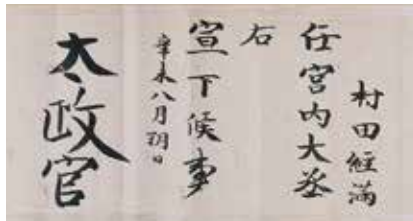 村田経満
任宮内大丞
右
宣下候事
辛未八月朔日
太政官